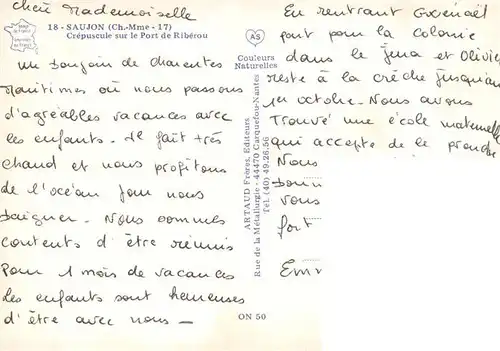 Chère Mademoiselle
18 - SAUJON (Ch.-Mme - 17)
Crépuscule sur le Port de Ribérou
Un bonjour de charentes
Maritimes où nous passons
d'agréables vacances avec
les enfants. Il fait très
chaud et nous profitons
de l'océan pour nous
baigner. Nous sommes
contents d'être réunis
pour 1 mois de vacances
les enfants sont heureuses
d'être avec nous —
AS
Couleurs
Naturelles
ARTAUD Frères, Editeurs
Rue de la Métallurgie - 44470 Carquefou-Nantes
Tél. (40) 49.26.56
ON 50
En rentrant Gwenaël
part pour la colonie
dans le Jura et Olivier
reste à la crèche jusqu'au
1er octobre. Nous avons
Trouvé une école maternelle
qui accepte de le prendre
Nous
vous
fort